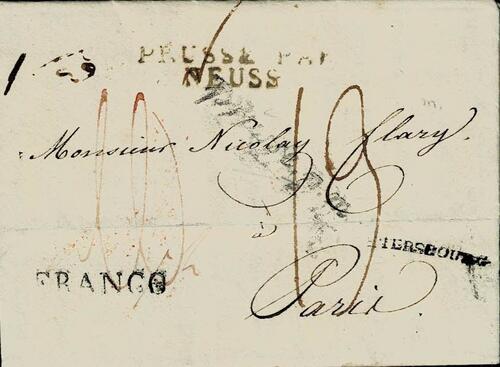 PRUSSE PAR
NEUSS
Monsieur Nicolay flary.
à
TERSBOURG
FRANCO
Paris.